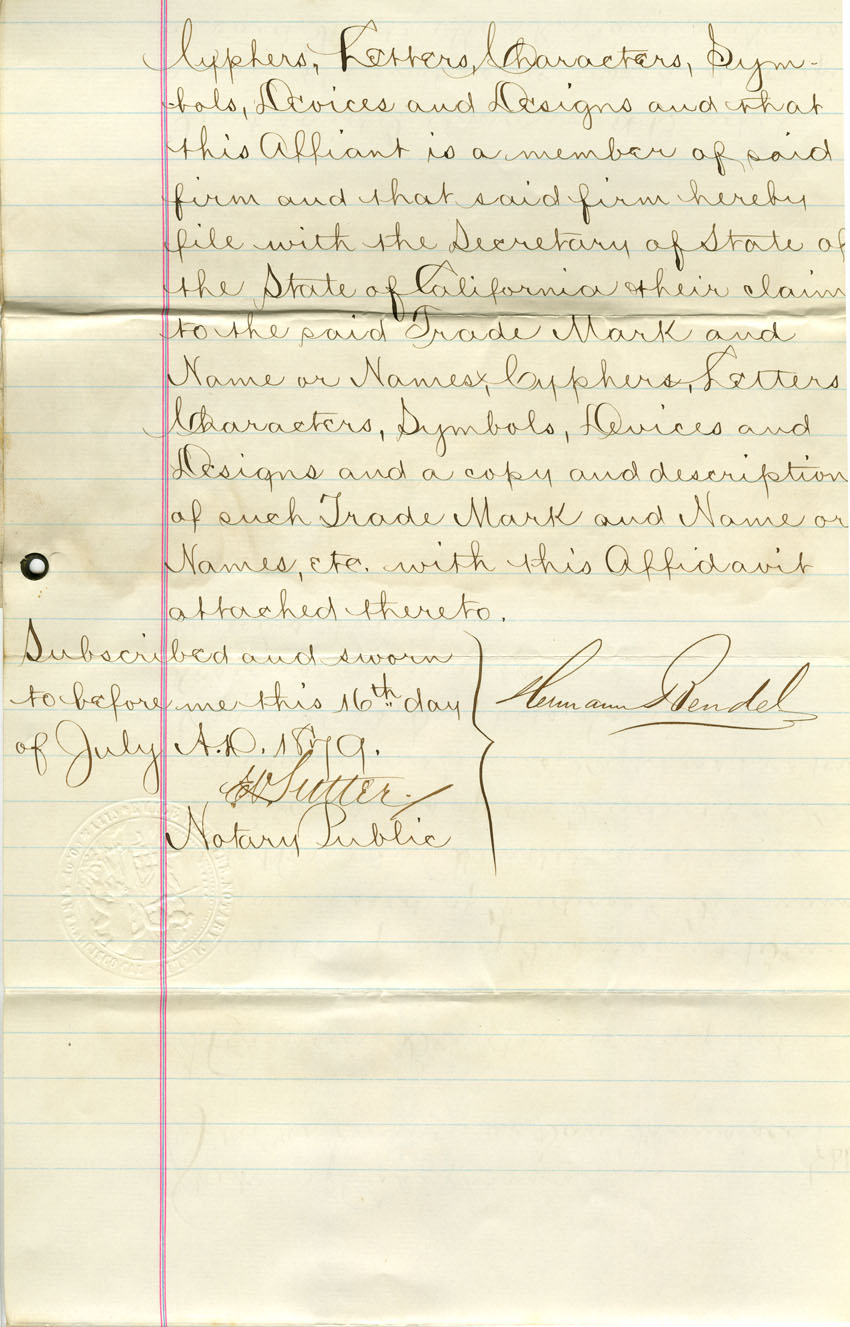 Cyphers, Letters, Characters, Sym-
bols, Devices and Designs and that
this Affiant is a member of said
firm and that said firm hereby
file with the Secretary of State of
the State of California their claim
to the said Trade Mark and
Name or Names, Cyphers, Letters
Characters, Symbols, Devices and
Designs and a copy and description
of such Trade Mark and Name or
Names, etc. with this Affidavit
attached thereto.
Subscribed and sworn
to before me this 16th day
of July A.D. 1879.
Sutter
Notary Public
Hermann Bendel